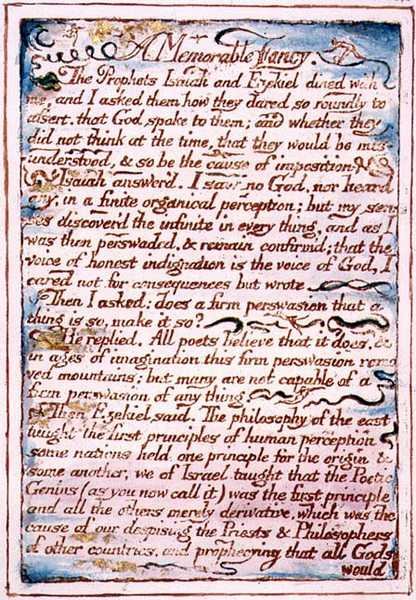 A Memorable Fancy.
The Prophets Isaiah and Ezekiel dined with
me, and I asked them how they dared so roundly to
assert. that God spoke to them; and whether they
did not think at the time, that they would be mis-
understood, & so be the cause of imposition.
Isaiah answer'd. I saw no God, nor heard
any, in a finite organical perception; but my sen-
ses discover'd the infinite in every thing, and as I
was then perswaded, & remain confirm'd; that the
voice of honest indignation is the voice of God, I
cared not for consequences but wrote
Then I asked: does a firm perswasion that a
thing is so, make it so?
He replied. All poets believe that it does, &
in ages of imagination this firm perswasion remo
ved mountains; but many are not capable of a
firm perswasion of any thing
Then Ezekiel said. The philosophy of the east
taught the first principles of human perception
some nations held one principle for the origin &
some another, we of Israel taught that the Poetic
Genius (as you now call it) was the first principle
and all the others merely derivative, which was the
cause of our despising the Priests & Philosophers
of other countries, and prophecying that all Gods
would